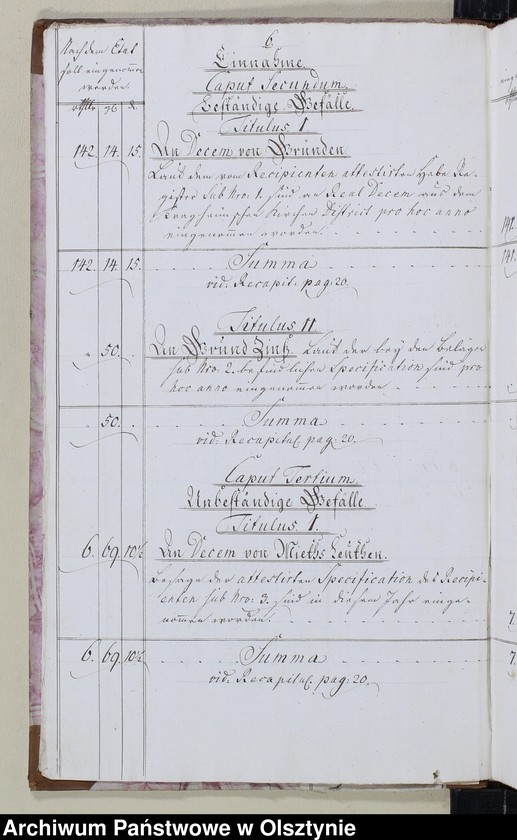 6.
Nach dem Etat
soll eingenommen
werden.
Einnahme
Caput Secundum.
Beständige Gefälle.
Titulus I
142. 14. 15. An Decem von Gründen
Laut dem vom Recipienten attestirten Hebe Re-
gister sub Nro. 1. sind an Real Decem aus dem
Kirchen District pro hoc anno
eingenommen worden.
142. 14. 15. Summa
vid. Recapit. pag. 20.
Titulus II
50. An Grund Zins. Laut der bey den Belägen
sub Nro. 2. befindlichen Specification sind pro
hoc anno eingenommen worden
50. Summa
vid. Recapital. pag. 20.
Caput Tertium
Unbeständige Gefälle
Titulus I.
6. 69. 10½ An Decem von Mieths Leuthen.
Besage der attestirten Specification des Recipi-
enten sub Nro. 3. sind in diesem Jahr einge-
nommen worden.
6. 69. 10½ Summa
vid. Recapital. pag. 20.
Archiwum Państwowe w Olsztynie